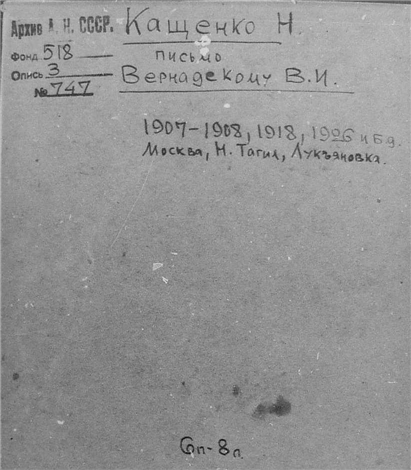 Архив А. Н. СССР. Кащенко Н.
Фонд 518 письмо
Опись 3 Вернадскому В.И.
№ 747
1907-1908, 1918, 1926 и б.д.
Москва, Н. Тагил, Лукьяновка.
6п-8л.